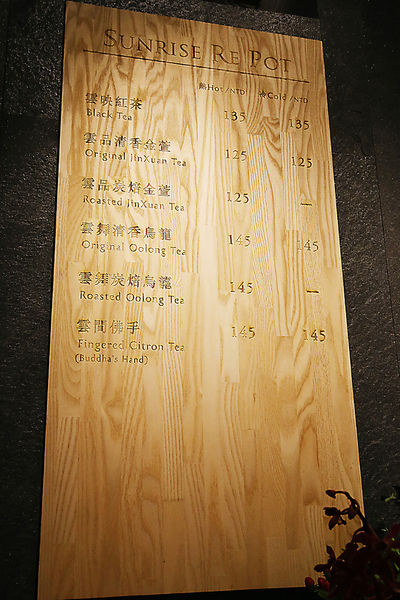 SUNRISE RE POT
熱Hot /NTD 冷Cold /NTD
雲映紅茶 135 135
Black Tea
雲品清香金萱 125 125
Original JinXuan Tea
雲品炭焙金萱 125 —
Roasted JinXuan Tea
雲舞清香烏龍 145 145
Original Oolong Tea
雲舞炭焙烏龍 145 —
Roasted Oolong Tea
雲間佛手 145 145
Fingered Citron Tea
(Buddha's Hand)